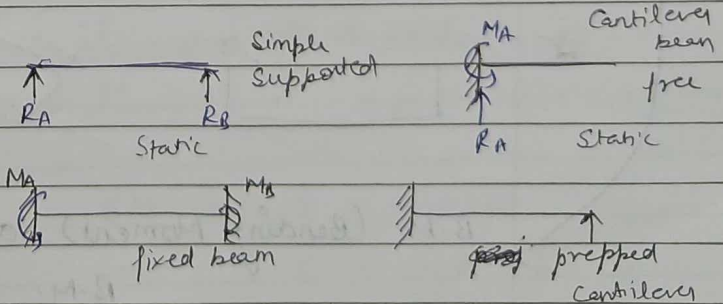 Simple
Supported
RA
RB
Static
MA
Cantilever
bean
free
RA
Static
MA
MB
fixed beam
prepped
Cantilever